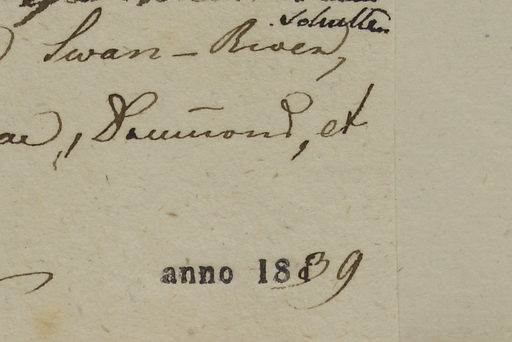 Schulten
Swan-River,
Drummond, et
anno 1839